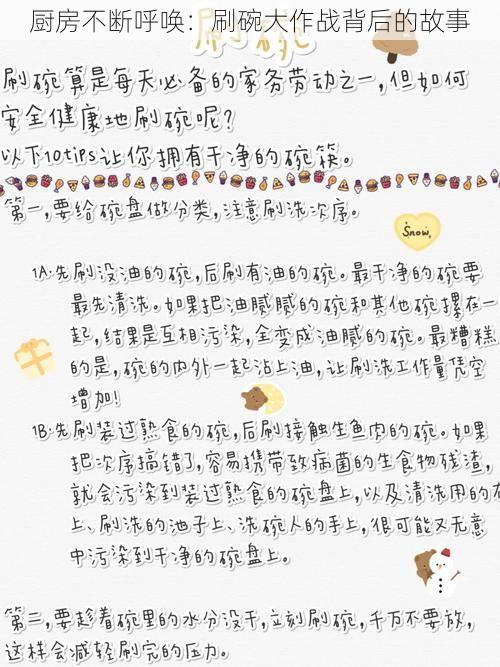 厨房不断呼唤：刷碗大作战背后的故事
刷碗
刷碗算是每天必备的家务劳动之一，但如何
安全健康地刷碗呢？
以下10tips让你拥有干净的碗筷。
第一，要给碗盘做分类，注意刷洗次序。
Snow
1A·先刷没油的碗，后刷有油的碗。最干净的碗要
最先清洗。如果把油腻腻的碗和其他碗摞在一
起，结果是互相污染，全变成油腻的碗。最糟糕
的是，碗的内外一起沾上油，让刷洗工作量凭空
增加！
1B·先刷装过熟食的碗，后刷接触生鱼肉的碗。如果
把次序搞错了，容易携带致病菌的生食物残渣，
就会污染到装过熟食的碗盘上，以及清洗用的布
上、刷洗的池子上、洗碗人的手上，很可能又无意
中污染到干净的碗盘上。
第二，要趁着碗里的水分没干，立刻刷碗，千万不要放，
这样会减轻刷完的压力。